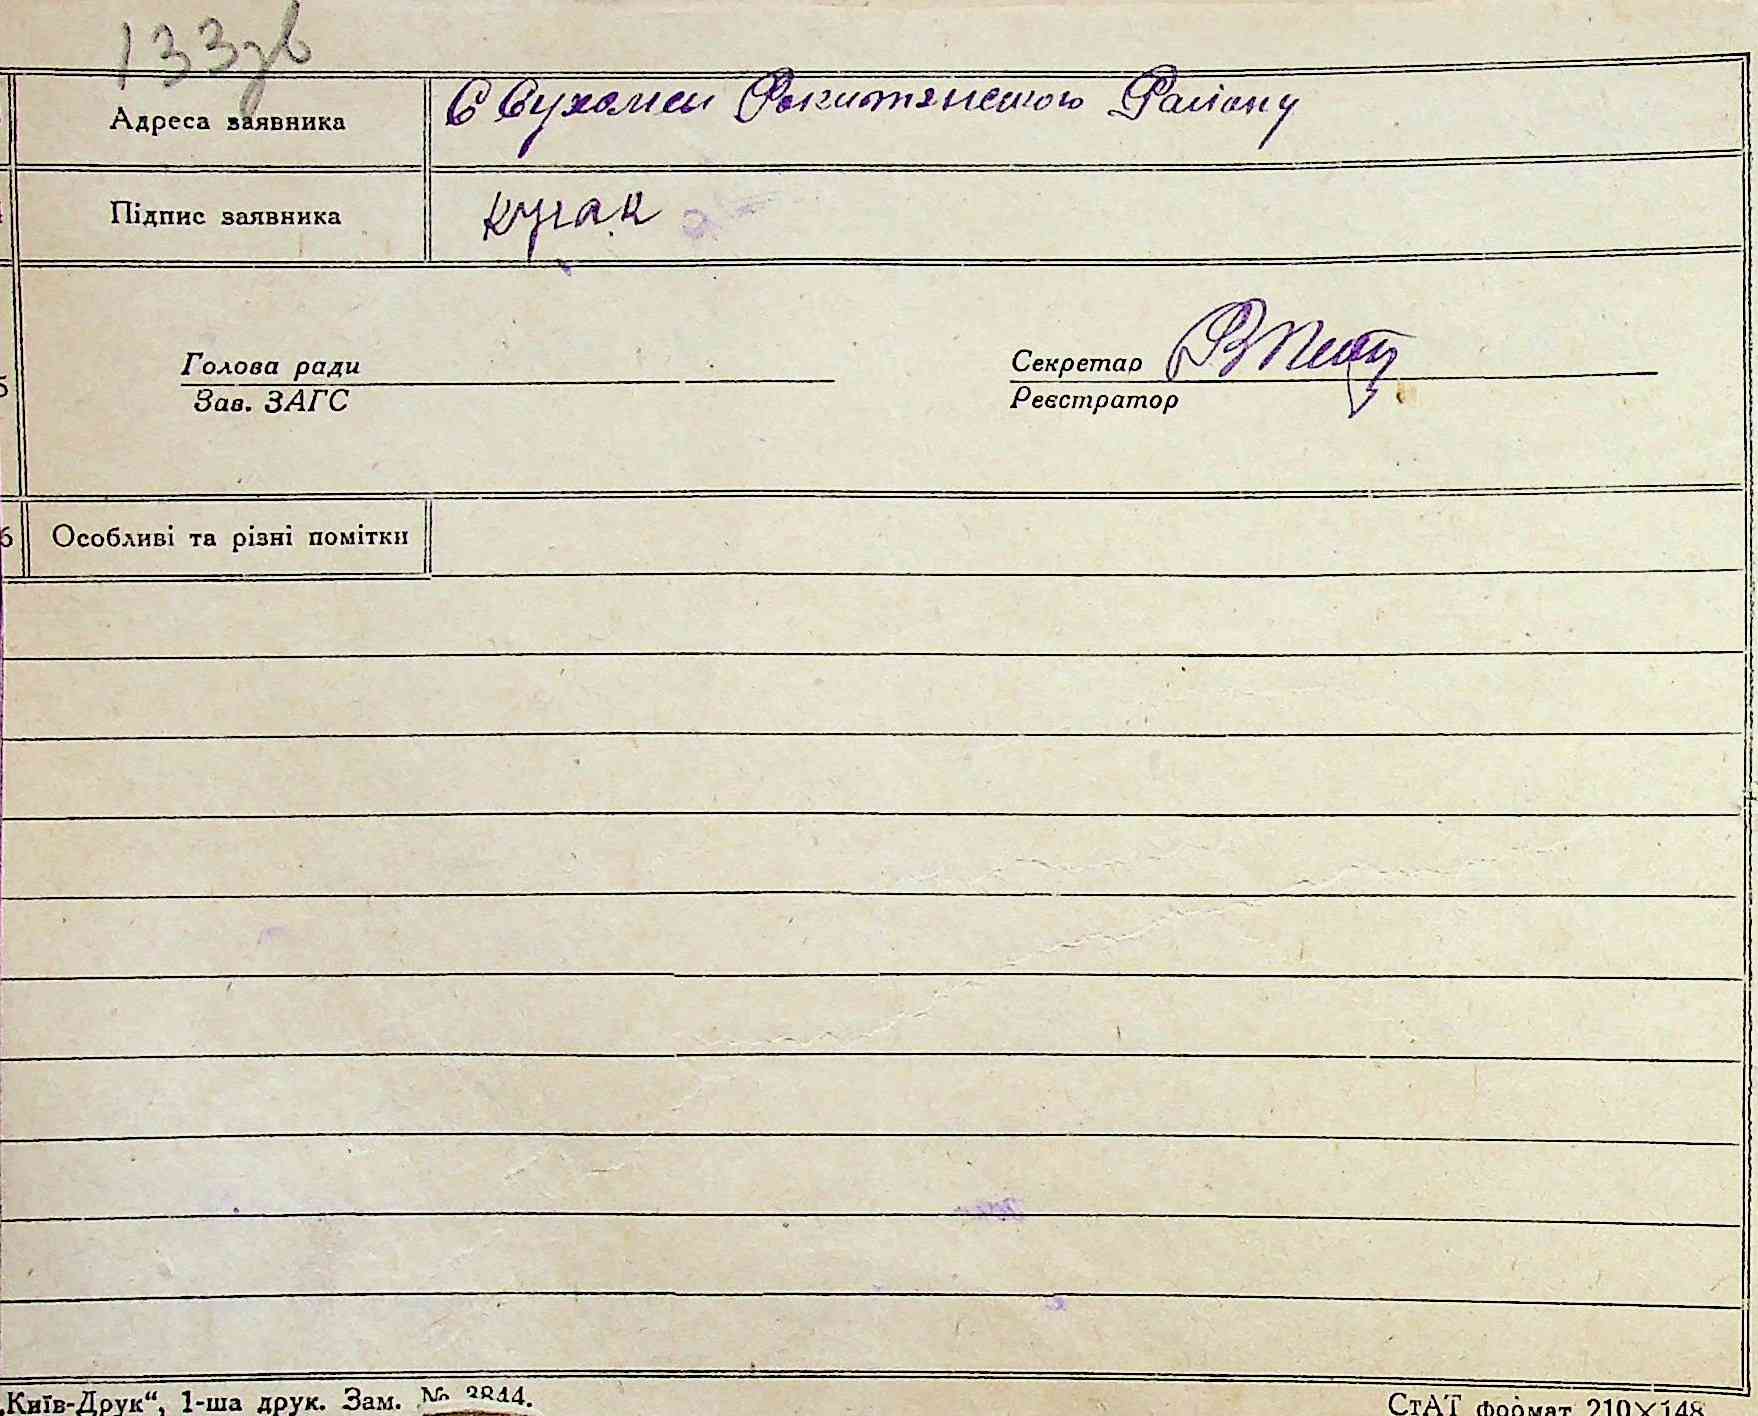 133зв
Адреса заявника С Сухолеси Рокитянського Району
Підпис заявника кугак
Голова ради Секретар
Зав. ЗАГС Реєстратор
6 Особливі та різні помітки
„Київ-Друк“, 1-ша друк. Зам. № 3844. СтАТ формат 210×148